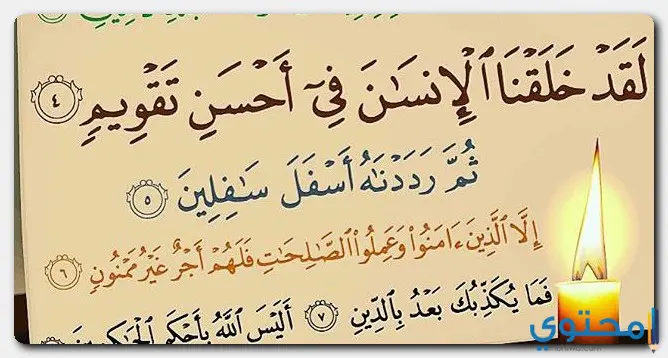 لَقَدْ خَلَقْنَا ٱلْإِنسَٰنَ فِىٓ أَحْسَنِ تَقْوِيمٍ ٤
ثُمَّ رَدَدْنَٰهُ أَسْفَلَ سَٰفِلِينَ ٥
إِلَّا ٱلَّذِينَ ءَامَنُوا۟ وَعَمِلُوا۟ ٱلصَّٰلِحَٰتِ فَلَهُمْ أَجْرٌ غَيْرُ مَمْنُونٍ ٦
فَمَا يُكَذِّبُكَ بَعْدُ بِٱلدِّينِ ٧ أَلَيْسَ ٱللَّهُ بِأَحْكَمِ ٱلْحَٰكِمِينَ
محتوي